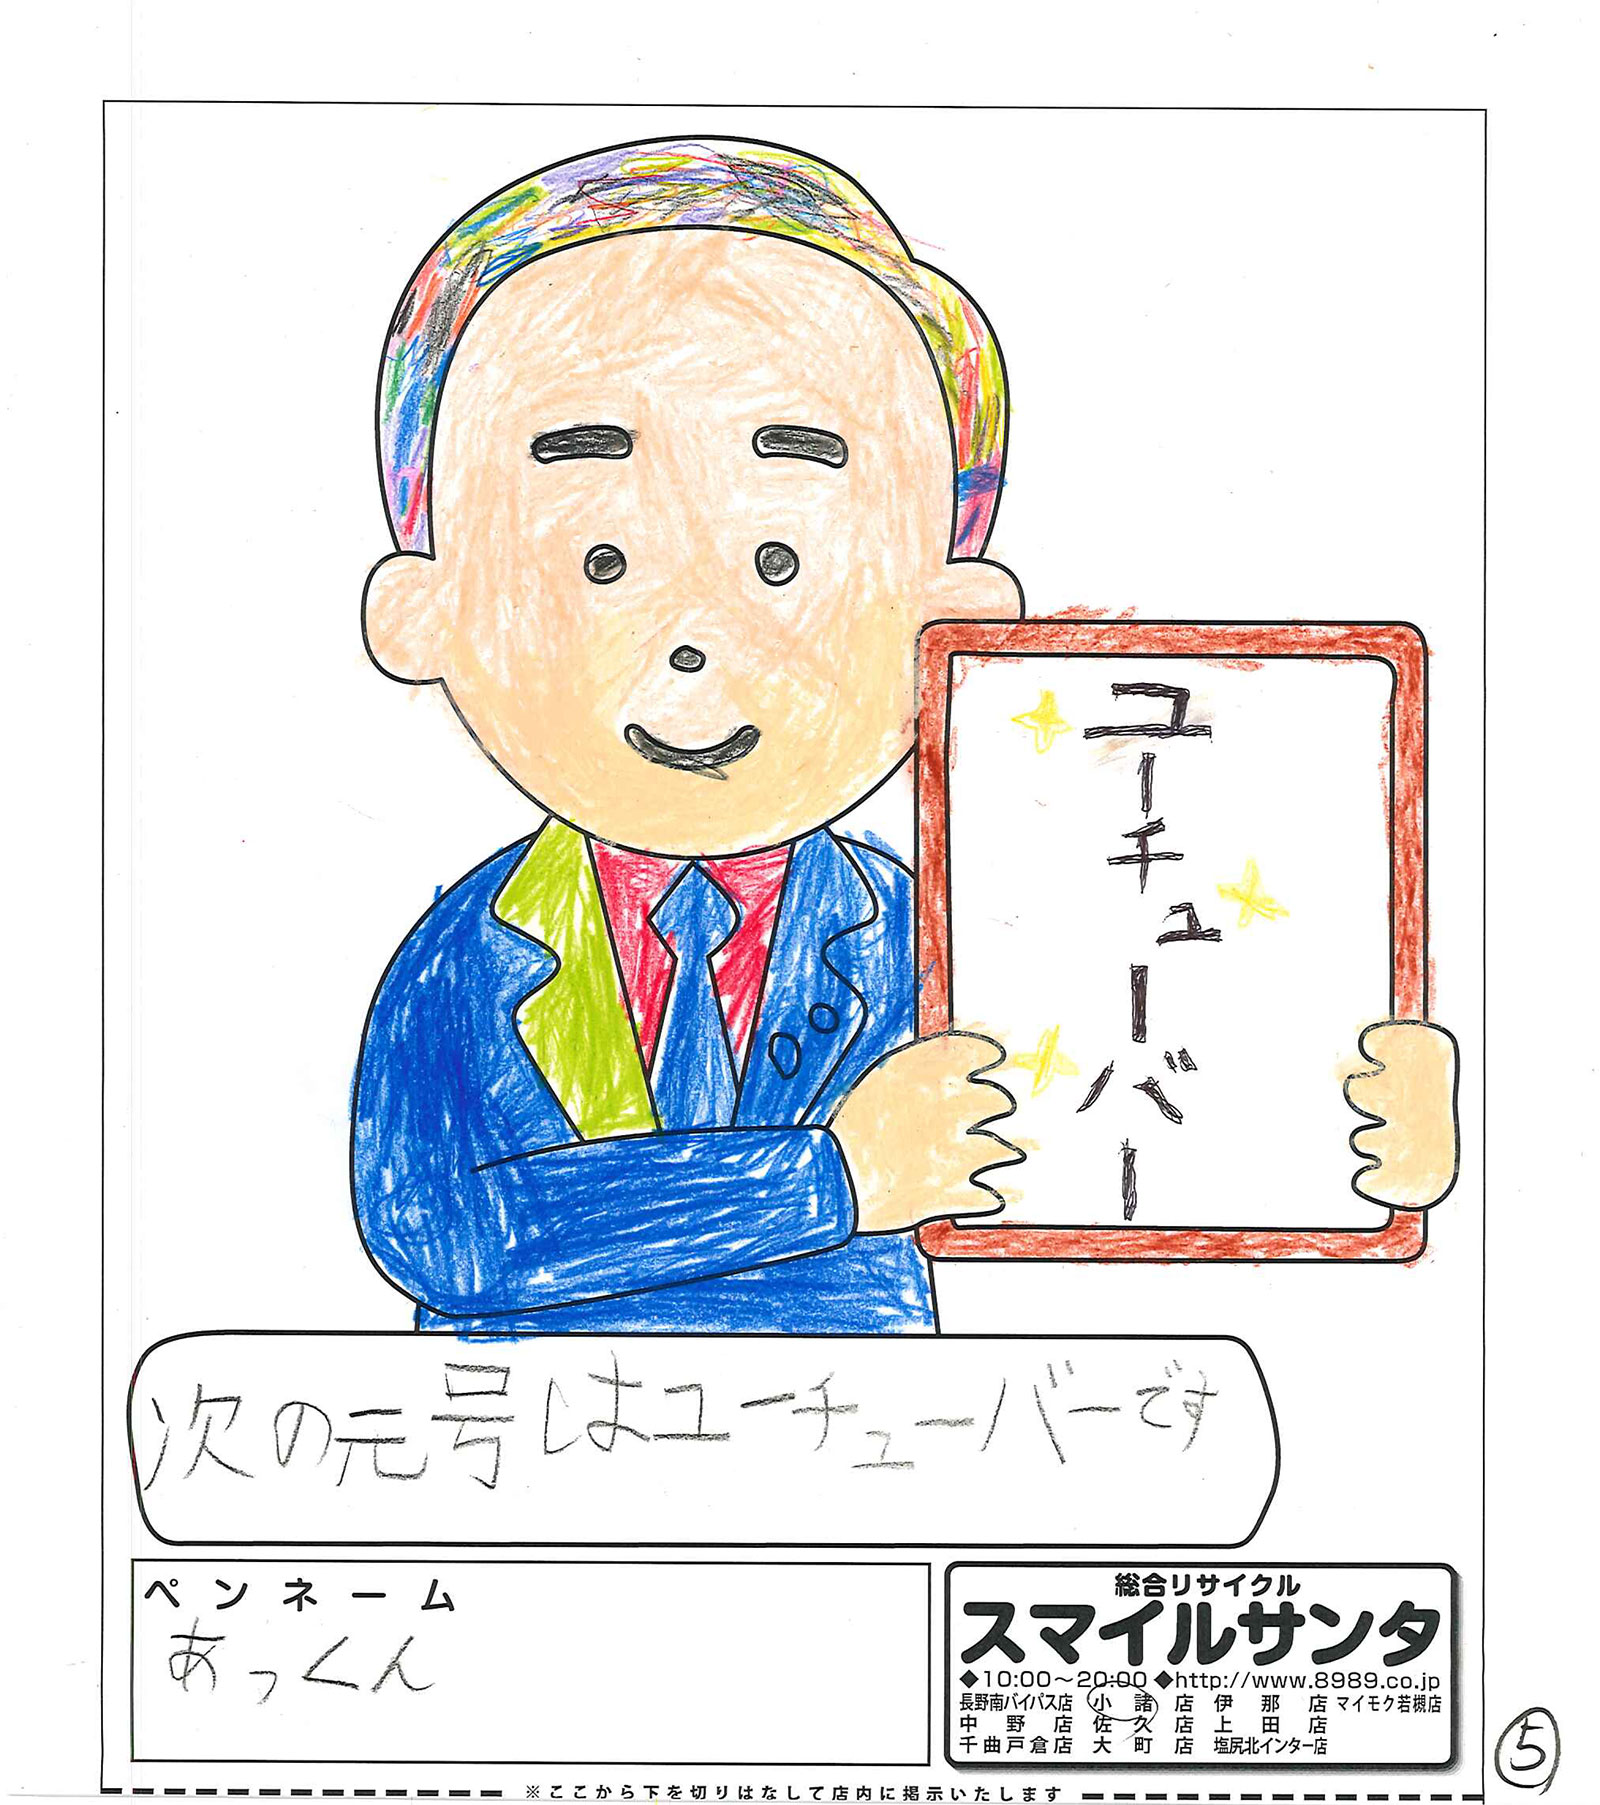 ユーチューバー
次の元号はユーチューバーです
ペンネーム
あっくん
総合リサイクル
スマイルサンタ
◆10:00～20:00 ◆http://www.8989.co.jp
長野南バイパス店 小諸店 伊那店 マイモク若槻店
中野店 佐久店 上田店
千曲戸倉店 大町店 塩尻北インター店
⑤
※ここから下を切りはなして店内に掲示いたします